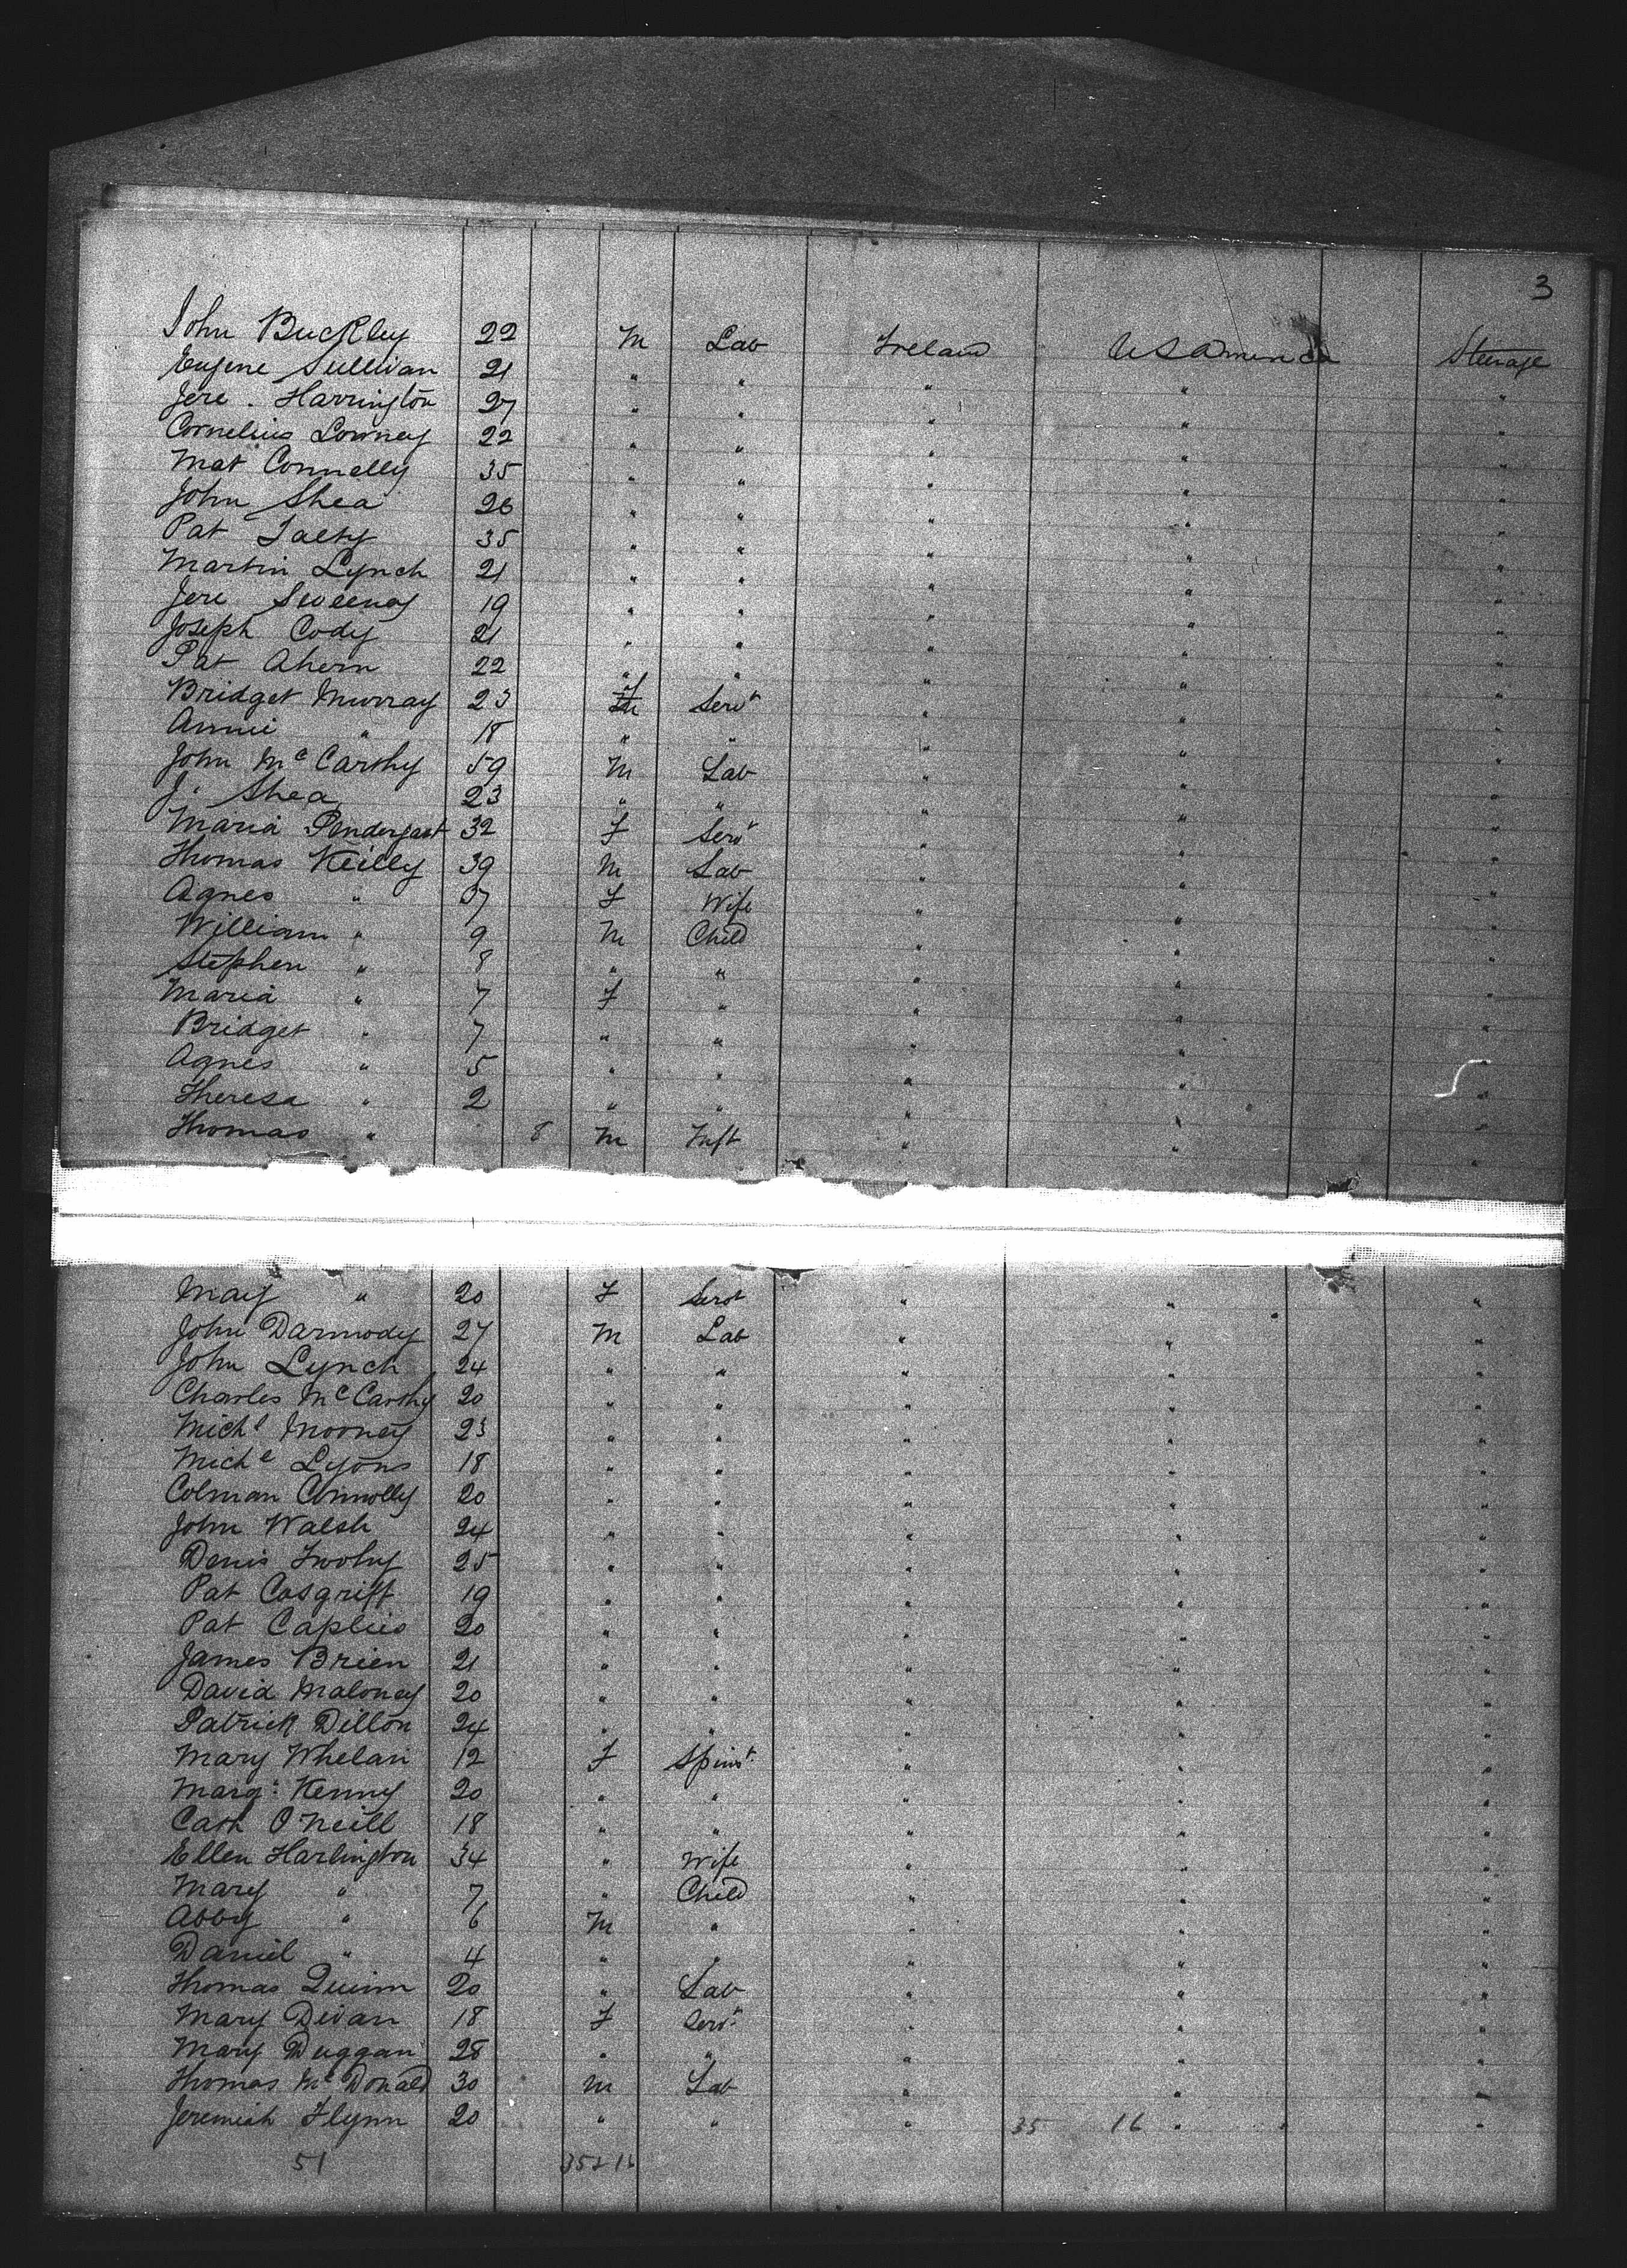 3
John Buckley 22 M Lab Ireland USAmerica Steerage
Eugene Sullivan 21 " " " " "
Jere. Harrington 27 " " " " "
Cornelius Lowney 22 " " " " "
Mat Connelly 35 " " " " "
John Shea 26 " " " " "
Pat Talty 35 " " " " "
Martin Lynch 21 " " " " "
Jere Sweeney 19 " " " " "
Joseph Cody 21 " " " " "
Pat Ahern 22 " " " " "
Bridget Murray 23 F Servt " " "
Annie " 18 " " " " "
John McCarthy 59 M Lab " " "
J. Shea 23 " " " " "
Maria Pendergast 32 F Servt " " "
Thomas Keilly 39 M Lab " " "
Agnes " 37 F Wife " " "
William " 9 M Child " " "
Stephen " 8 " " " " "
Maria " 7 F " " " "
Bridget " 7 " " " " "
Agnes " 5 " " " " "
Theresa " 2 " " " " "
Thomas " 8 M Inft " " "
May " 20 F Servt " " "
John Darmody 27 M Lab " " "
John Lynch 24 " " " " "
Charles McCarthy 20 " " " " "
Michl Mooney 23 " " " " "
Michl Lyons 18 " " " " "
Colman Connolly 20 " " " " "
John Walsh 24 " " " " "
Denis Twohy 25 " " " " "
Pat Cosgriff 19 " " " " "
Pat Caplis 20 " " " " "
James Brien 21 " " " " "
David Maloney 20 " " " " "
Patrick Dillon 24 " " " " "
Mary Whelan 12 F Spinst. " " "
Margt Kenny 20 " " " " "
Cath O'Neill 18 " " " " "
Ellen Harlington 34 " Wife " " "
Mary " 7 " Child " " "
Abby " 6 M " " " "
Daniel " 4 " " " " "
Thomas Quinn 20 " Lab " " "
Mary Divan 18 F Servt " " "
Mary Duggan 28 " " " " "
Thomas McDonald 30 M Lab " " "
Jeremiah Flynn 20 " " " 35 16 " "
51